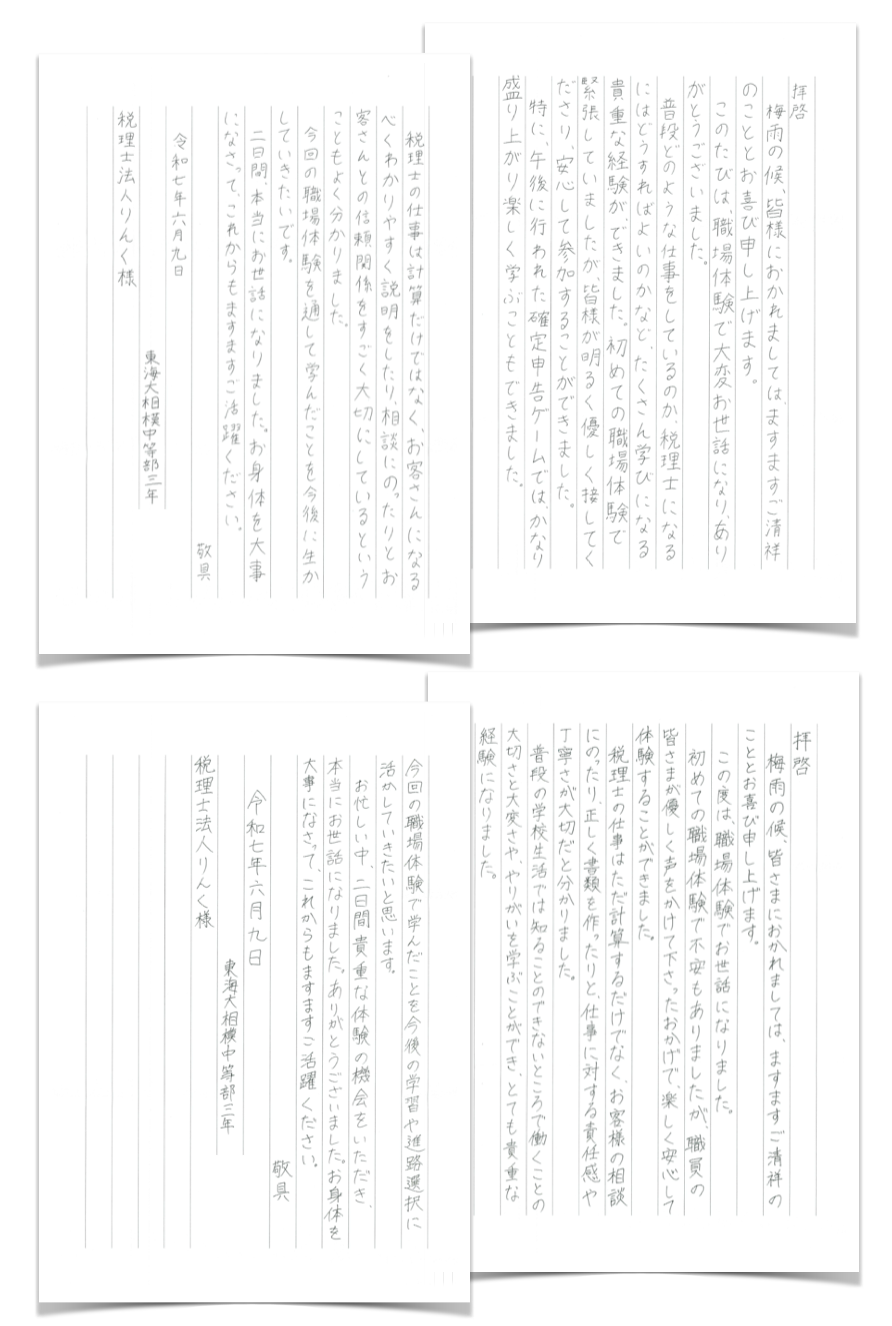 拝啓
梅雨の候、皆様におかれましては、ますますご清祥
のこととお喜び申し上げます。
このたびは、職場体験で大変お世話になり、あり
がとうございました。
普段どのような仕事をしているのか、税理士になる
にはどうすればよいのかなど、たくさん学びになる
貴重な経験が、できました。初めての職場体験で
緊張していましたが、皆様が明るく優しく接してく
ださり、安心して参加することができました。
特に、午後に行われた確定申告ゲームでは、かなり
盛り上がり楽しく学ぶこともできました。
税理士の仕事は計算だけではなく、お客さんになる
べくわかりやすく説明をしたり、相談にのったりとお
客さんとの信頼関係をすごく大切にしているという
こともよく分かりました。
今回の職場体験を通して学んだことを今後に生か
していきたいです。
二日間、本当にお世話になりました。お身体を大事
になさって、これからもますますご活躍ください。
敬具
令和七年六月九日
東海大相模中等部三年
税理士法人りんく様
拝啓
梅雨の候、皆さまにおかれましては、ますますご清祥の
こととお喜び申し上げます。
この度は、職場体験でお世話になりました。
初めての職場体験で不安もありましたが、職員の
皆さまが優しく声をかけて下さったおかげで、楽しく安心して
体験することができました。
税理士の仕事はただ計算するだけでなく、お客様の相談
にのったり、正しく書類を作ったりと、仕事に対する責任感や
丁寧さが大切だと分かりました。
普段の学校生活では知ることのできないところで働くことの
大切さと大変さや、やりがいを学ぶことができ、とても貴重な
経験になりました。
今回の職場体験で学んだことを今後の学習や進路選択に
活かしていきたいと思います。
お忙しい中、二日間貴重な体験の機会をいただき、
本当にお世話になりました。ありがとうございました。お身体を
大事になさって、これからもますますご活躍ください。
敬具
令和七年六月九日
東海大相模中等部三年
税理士法人りんく様